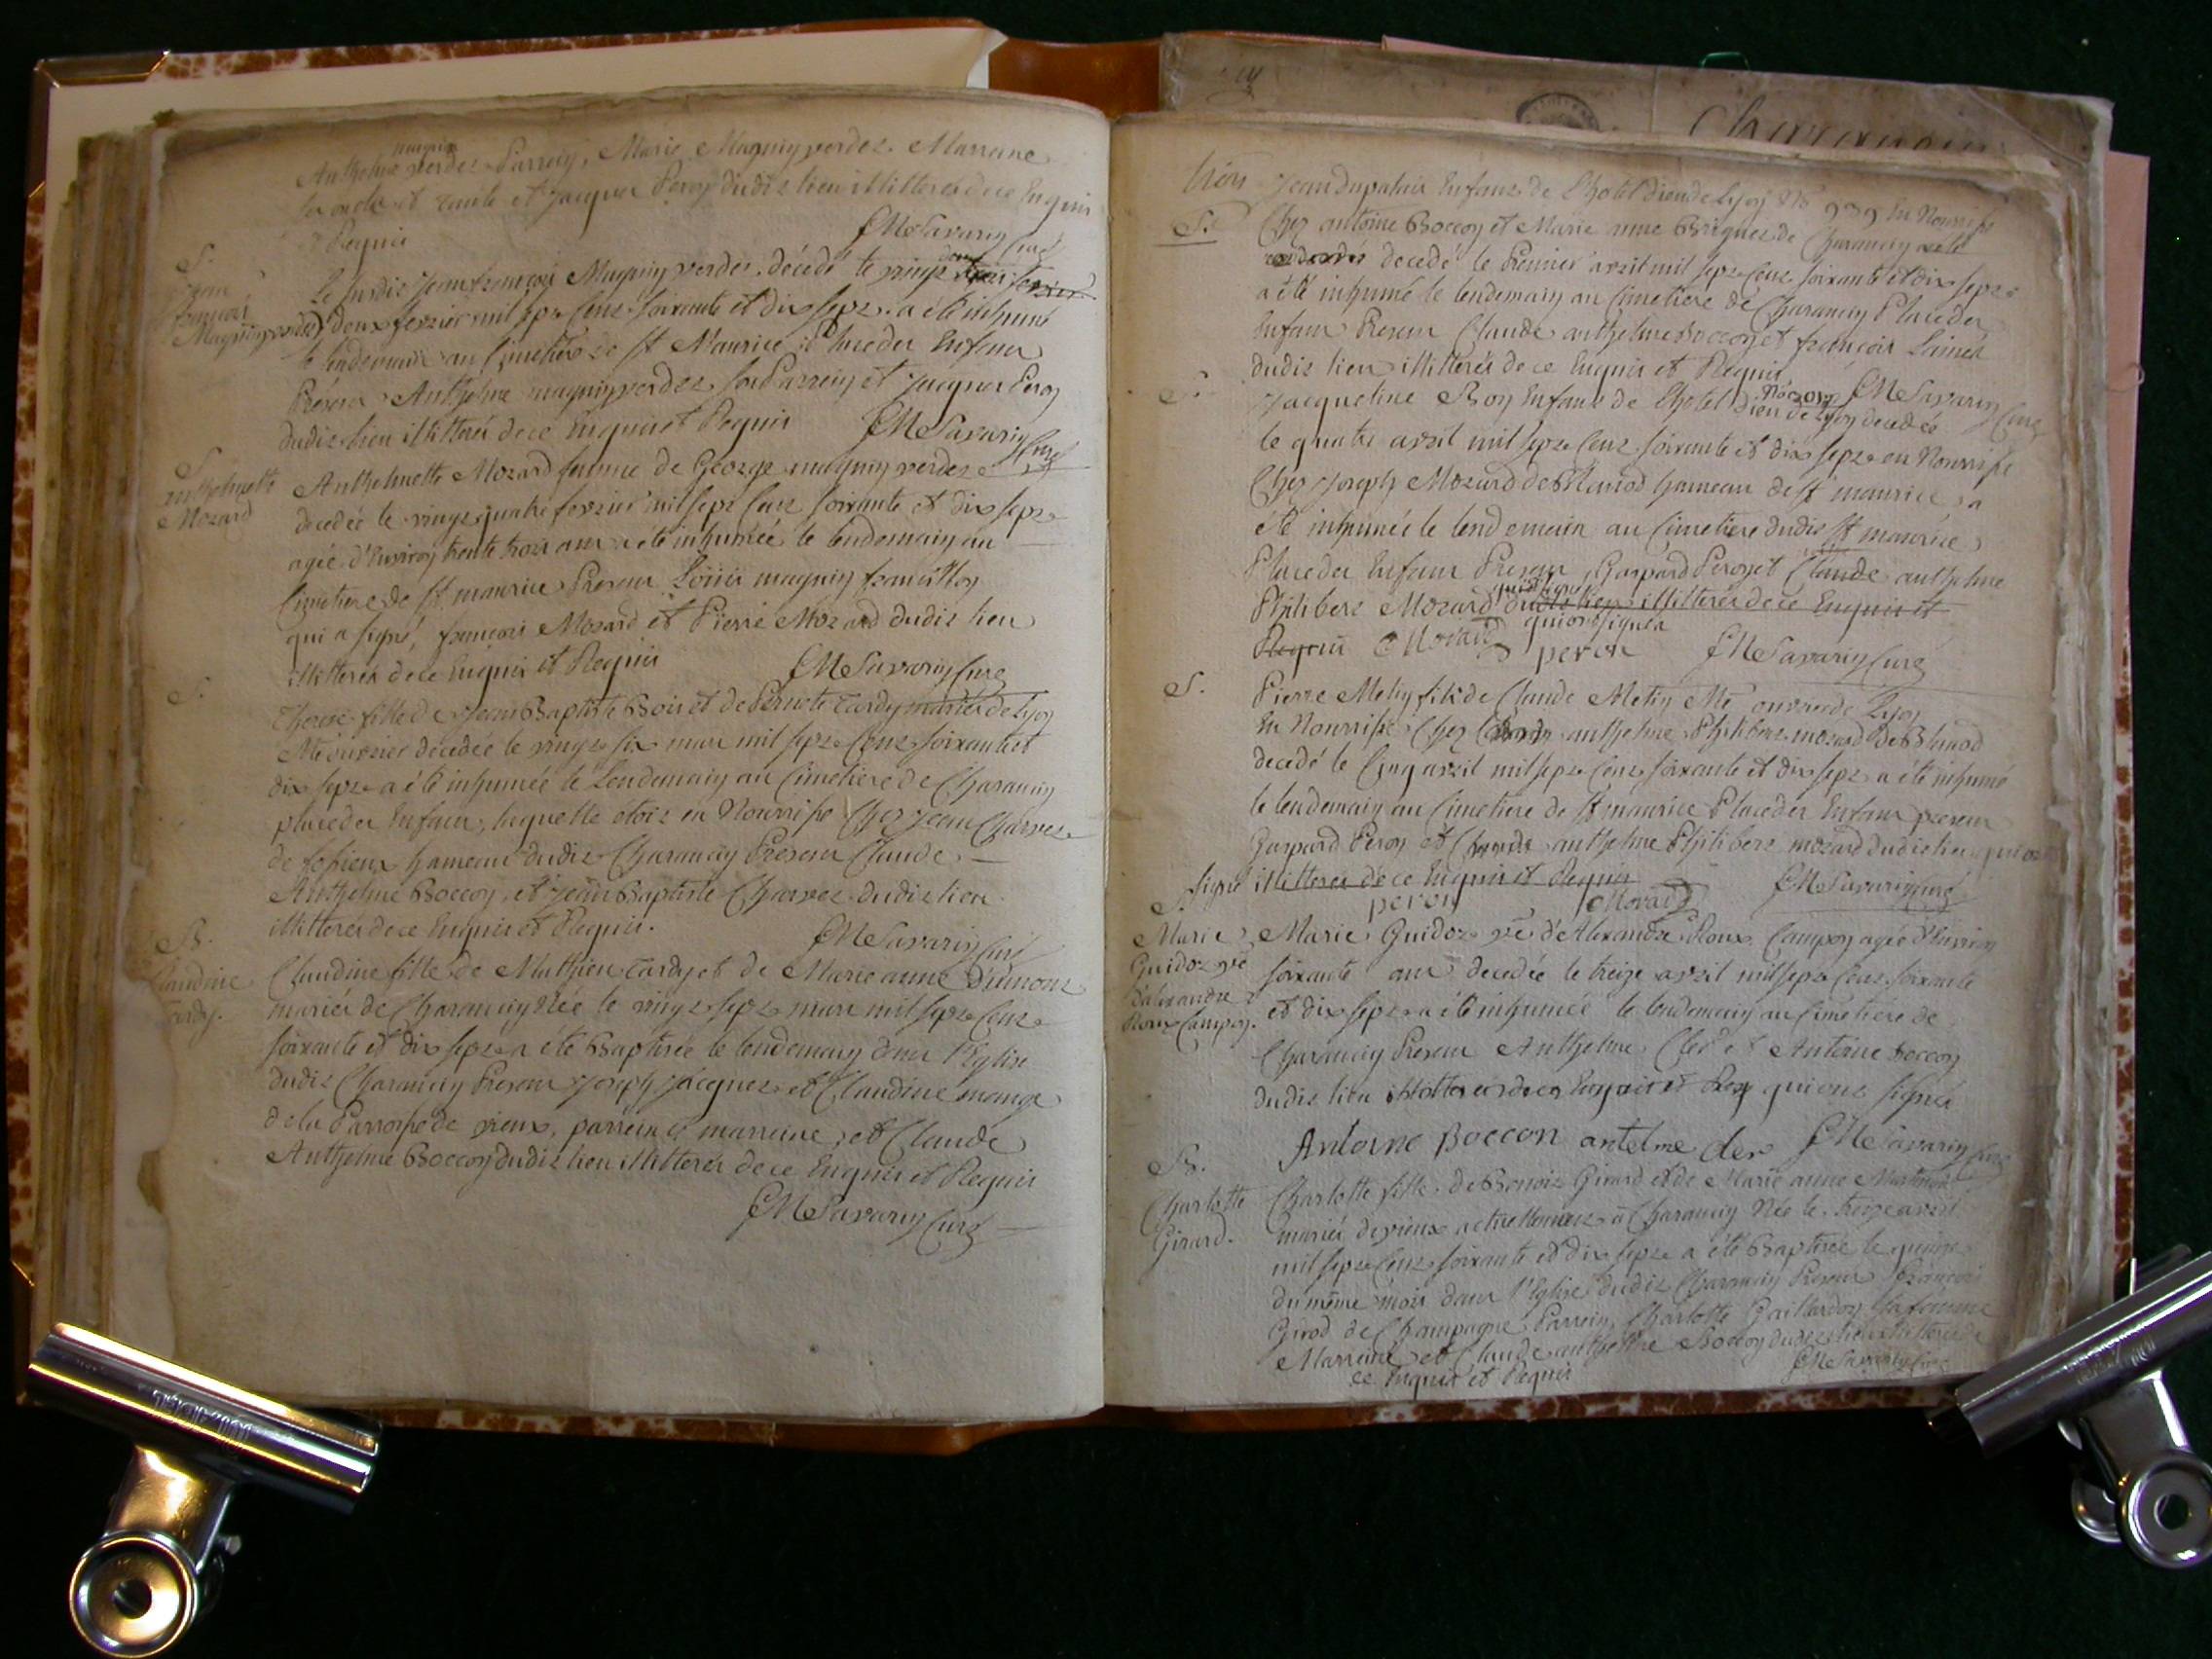 magnin
Anthelme verdet Parrein, Marie Magnin verdet Marreine
ses oncle et tante et Jacques Peron dudit lieu illitterés de ce Enquis
et Requis
CM Savarin Curé
S.
Jean
françois
Magnin verdet
Le susdit Jean françois Magnin verdet décédé le vingt
deux fevrier mil sept Cent soixante et dix sept a été inhumé
le lendemain au Cimetiere de St Maurice Place des Enfans
Présens Anthelme magnin verdet son Parrein et Jacques Peron
dudit lieu illitterés de ce Enquis et Requis CM Savarin Curé
S.
anthelmette
Mozard
Anthelmette Mozard femme de George magnin verdet
decedée le vingt quatre fevrier mil sept Cent soixante et dix sept
agée d'Environ trente trois ans a été inhumée le lendemain au
Cimetiere de St maurice Presens Loüis magnin
qui a signé, françois Mozard et Pierre Mozard dudit lieu
illitterés de ce Enquis et Requis CM Savarin Curé
S.
Therese fille de Jean Baptiste Bois et de Pernete Tardy mariés de Lyon
Me ouvrier decedée le vingt six mars mil sept Cent soixante et
dix sept a été inhumée le Lendemain au Cimetiere de Charancin
place des Enfans, laquelle etoit en Nourrisse Chez Jean Charvet
de fossieux hameau dudit Charancin Presens Claude
Anthelme Boccon, et Jean Baptiste Charvet dudit lieu
illitterés de ce Enquis et Requis.
CM Savarin Curé
B.
Claudine
Tardy.
Claudine fille de Mathieu Tardy et de Marie anne Dumont
mariés de Charancin Née le vingt sept mars mil sept Cent
soixante et dix sept a été Baptisée le lendemain dans l'Eglise
dudit Charancin Presens Joseph Jacquet et Claudine monge
de la Parroisse de vieux, parrein et marreine, et Claude
Anthelme Boccon dudit lieu illitterés de ce Enquis et Requis
CM Savarin Curé
S.
Jean Dupalais Enfant de L'hotel dieu de Lyon No 939 En Nourrisse
Chez antoine Boccon et Marie anne Briquet de Charancin
decedé le Premier avril mil sept Cent soixante et dix sept
a été inhumé le lendemain au Cimetiere de Charancin Place des
Enfans Presens Claude anthelme Boccon et françois Lainé
dudit lieu illitterés de ce Enquis et Requis
CM Savarin Curé
S.
Jacqueline Bon Enfant de L'hotel Dieu de Lyon decedée
le quatre avril mil sept Cent soixante et dix sept en Nourrisse
Chez Joseph Mozard de Blanod hameau de St maurice, a
été inhumée le lendemain au Cimetiere dudit St maurice
Place des Enfans Presens Gaspard Peron et Claude anthelme
Philibert Mozard dudit lieu illitterés de ce Enquis et
Requis qui ont signés
Mozard peron CM Savarin Curé
S.
Pierre Metin fils de Claude Metin Me ouvrier de Lyon
En Nourrisse Chez Claude anthelme Philibert mozard de Blanod
decedé le Cinq avril mil sept Cent soixante et dix sept a été inhumé
le lendemain au Cimetiere de St maurice Place des Enfans presens
Gaspard Peron et Claude anthelme Philibert mozard dudit lieu qui ont
signé illitterés de ce Enquis et Requis
peron Mozard CM Savarin Curé
S.
Marie
Guidoz ve
d'alexandre
Roux Campon.
Marie Guidoz ve d'Alexandre Roux Campon agée d'Environ
soixante ans decedée le treize avril mil sept Cent soixante
et dix sept a été inhumée le lendemain au Cimetiere de
Charancin Presens Anthelme Clerc et Antoine Boccon
dudit lieu illitterés de ce Enquis et Req qui ont signés
Antoine Boccon antelme cler CM Savarin Curé
B.
Charlotte
Girard.
Charlotte fille de Benoit Girard et de Marie anne
mariés de vieux actuellement à Charancin Née le treize avril
mil sept Cent soixante et dix sept a été Baptisée le quinze
du même mois dans l'Eglise dudit Charancin Presens François
Girod de Champagne Parrein, Charlotte Gaillardon sa femme
Marreine et Claude anthelme Boccon dudit lieu illitterés de
ce Enquis et Requis CM Savarin Curé